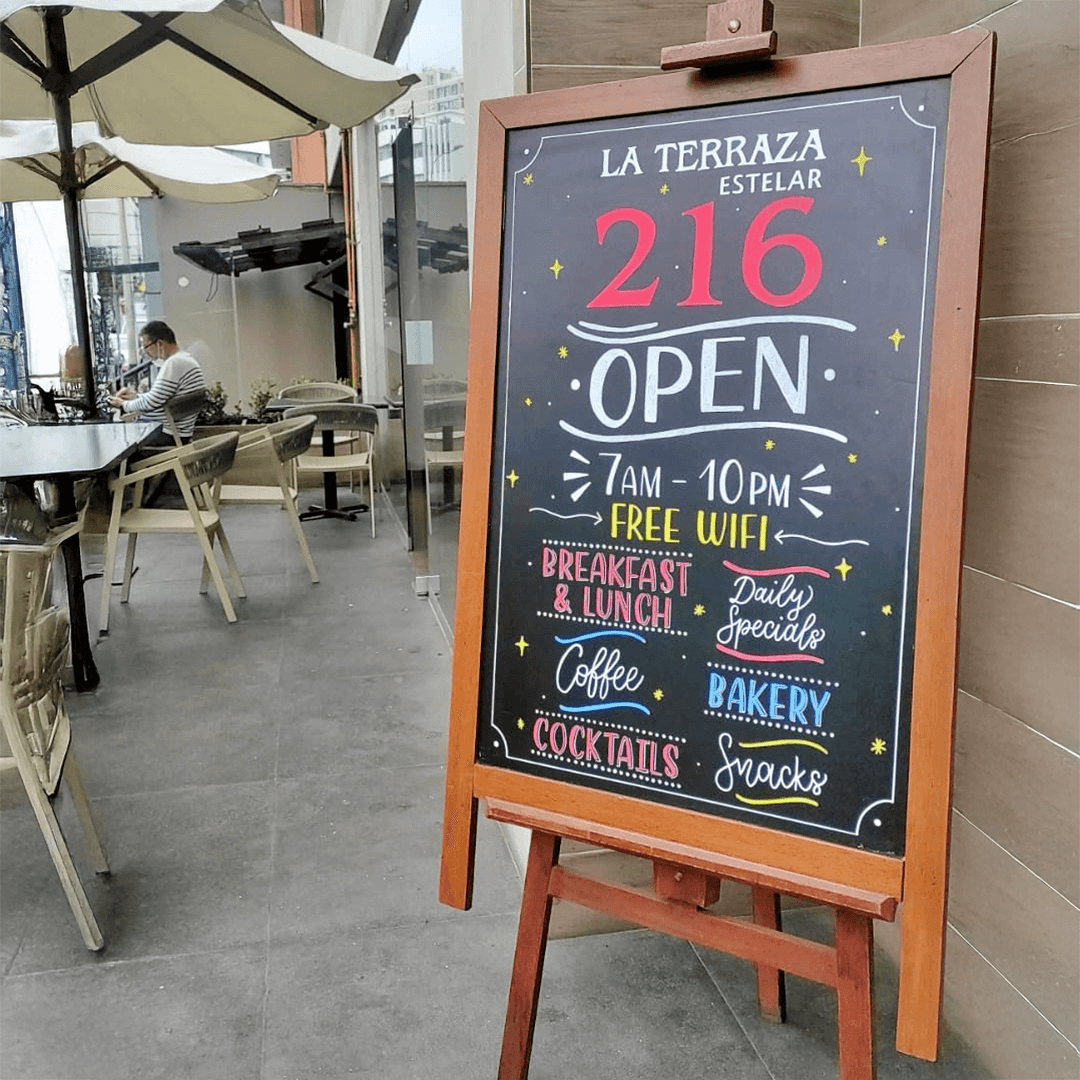 LA TERRAZA
ESTELAR
216
OPEN
7AM - 10PM
FREE WIFI
BREAKFAST
& LUNCH
Coffee
COCKTAILS
Daily
Specials
BAKERY
Snacks